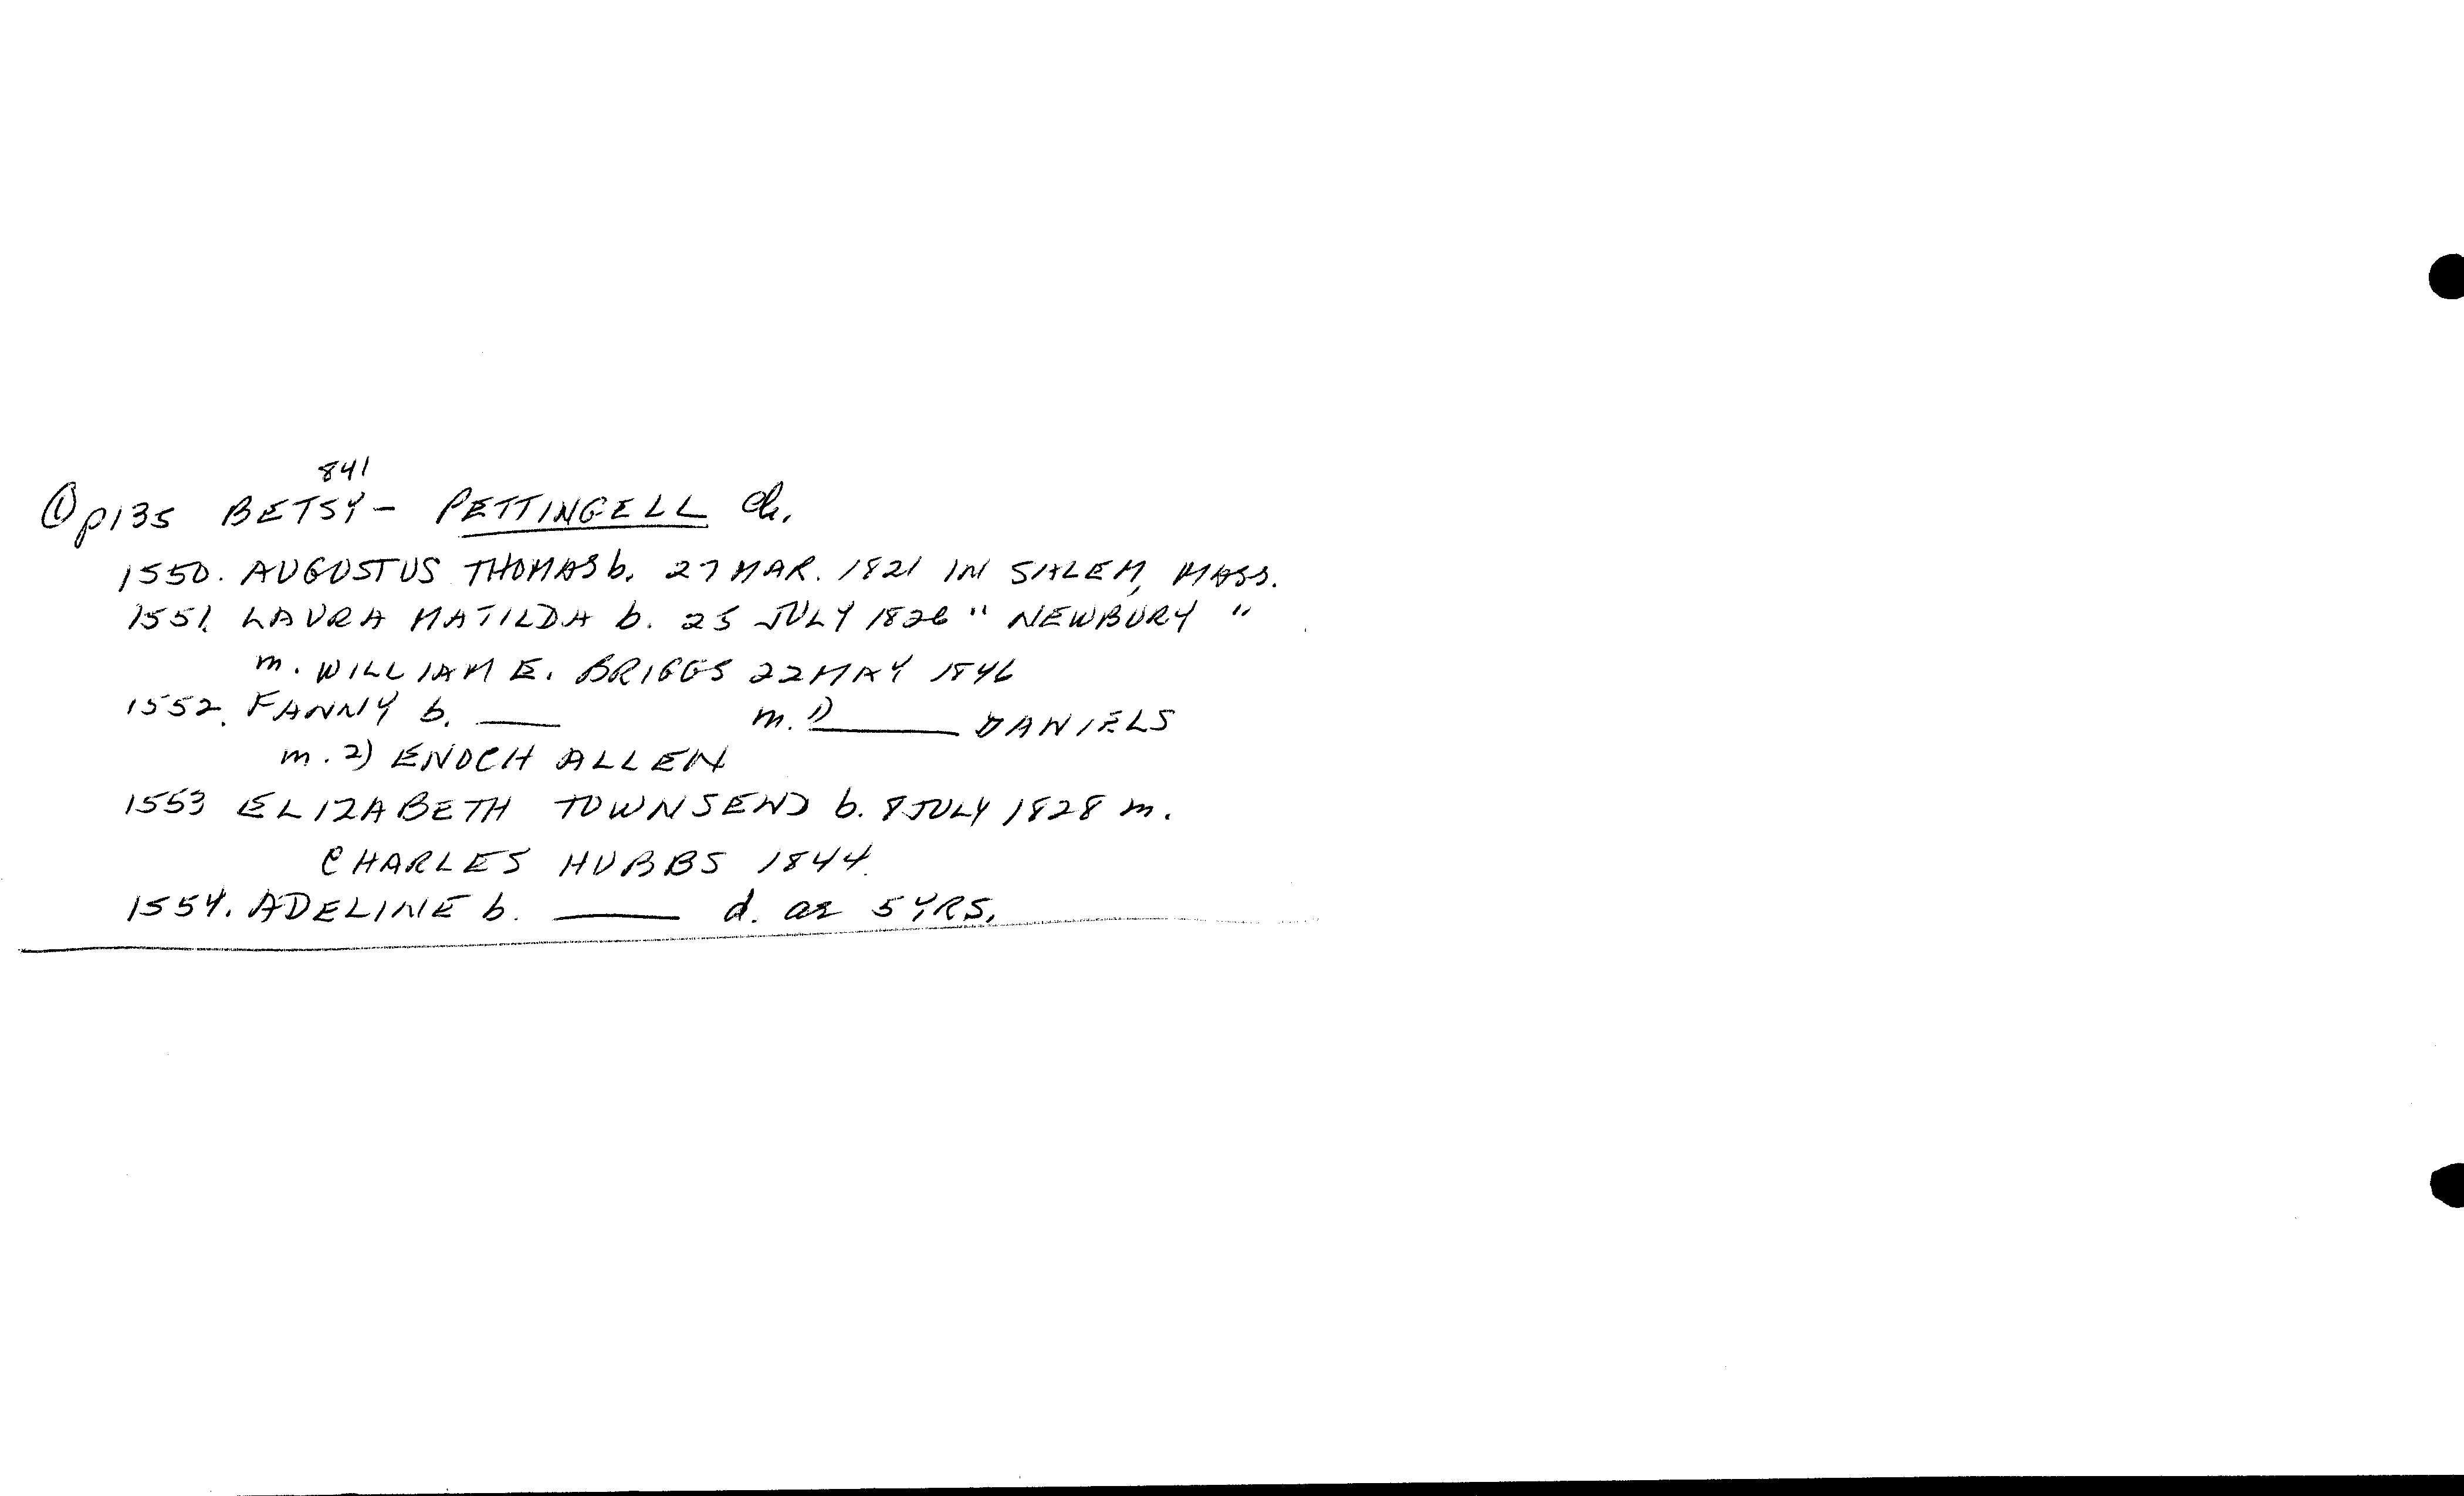 841
① p135 BETSY - PETTINGELL Ch.
1550. AUGUSTUS THOMAS b. 27 MAR. 1821 IN SALEM, MASS.
1551. LAURA MATILDA b. 25 JULY 1826 " NEWBURY "
m. WILLIAM E. BRIGGS 22 MAY 1846
1552. FANNY b. ____ m. 1) ____ DANIELS
m. 2) ENOCH ALLEN
1553 ELIZABETH TOWNSEND b. 8 JULY 1828 m.
CHARLES HUBBS 1844.
1554. ADELINE b. ____ d. at 5 YRS.